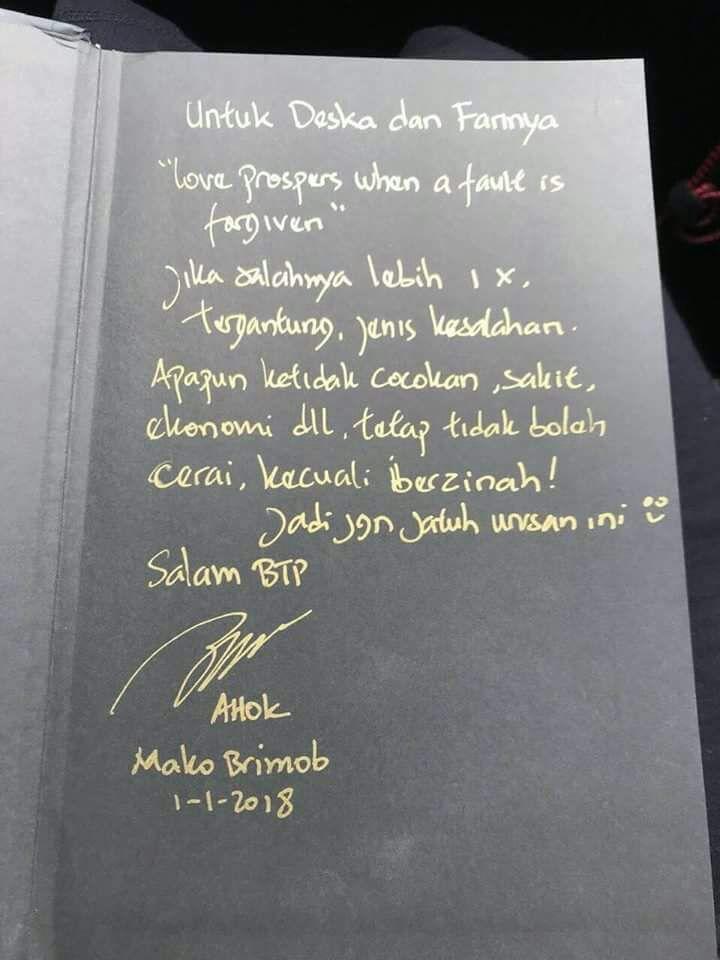 Untuk Deska dan Farinya
"Love prospers when a fault is
forgiven"
Jika salahnya lebih 1 x,
tergantung, jenis kesalahan.
Apapun ketidak cocokan, sakit,
ekonomi dll, tetap tidak boleh
cerai, kecuali berzinah!
Jadi jgn jatuh urusan ini
Salam BTP
AHOK
Mako Brimob
1-1-2018